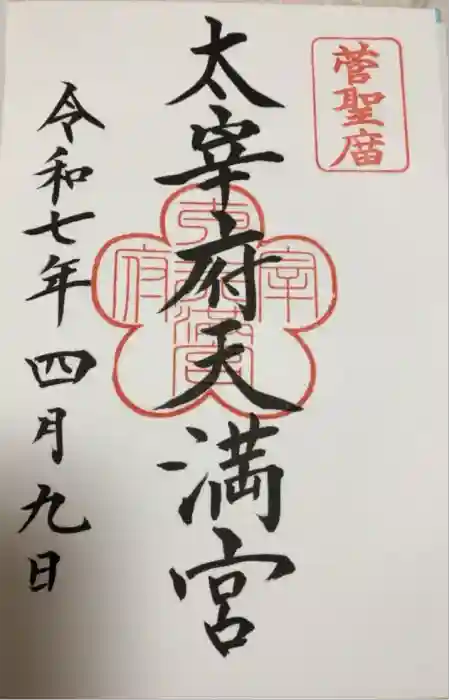 菅聖廟
太宰府天満宮
令和七年四月九日